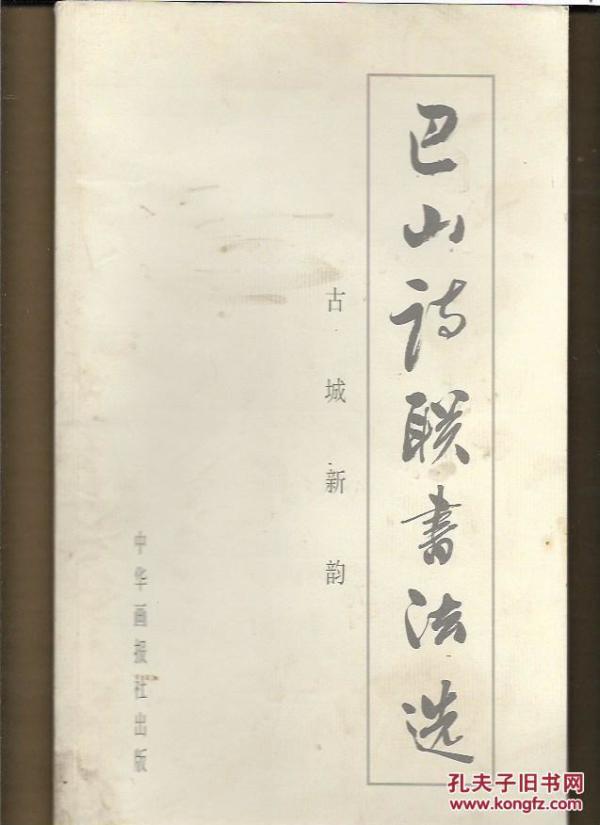 巴山诗联书法选
古城新韵
中华画报社出版
孔夫子旧书网
www.kongfz.com